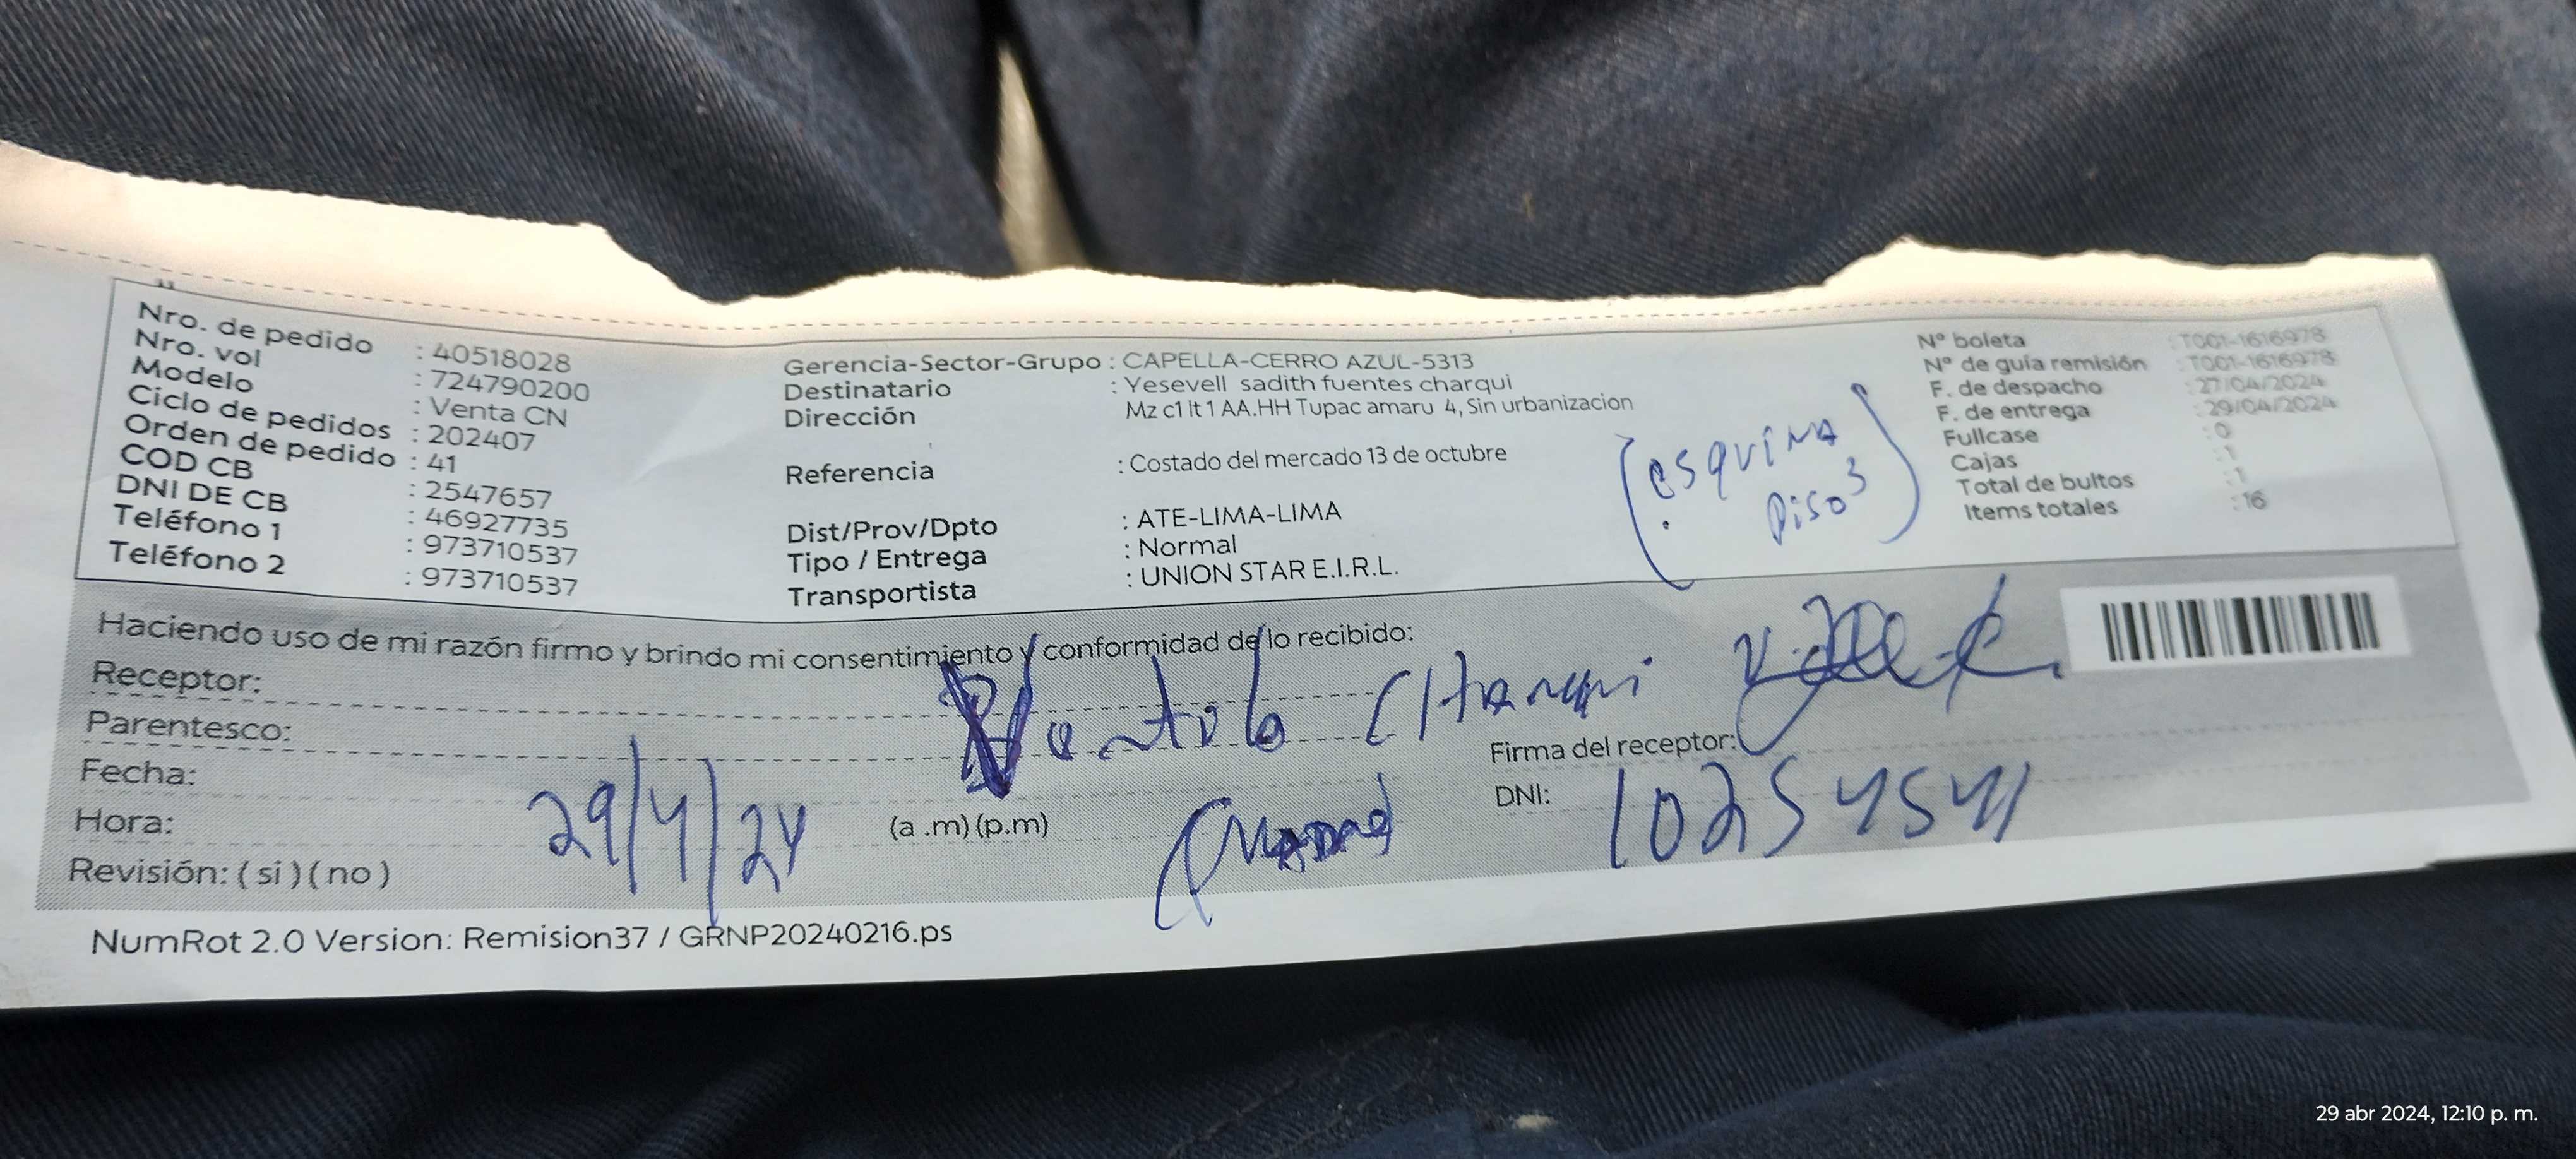 Nro. de pedido : 40518028
Nro. vol : 724790200
Modelo : Venta CN
Ciclo de pedidos : 202407
Orden de pedido : 41
COD CB : 2547657
DNI DE CB : 46927735
Teléfono 1 : 973710537
Teléfono 2 : 973710537
Gerencia-Sector-Grupo : CAPELLA-CERRO AZUL-5313
Destinatario : Yesevell sadith fuentes charqui
Dirección Mz c1 lt 1 AA.HH Tupac amaru 4, Sin urbanizacion
Referencia : Costado del mercado 13 de octubre
Dist/Prov/Dpto : ATE-LIMA-LIMA
Tipo / Entrega : Normal
Transportista : UNION STAR E.I.R.L.
(esquina
piso 3)
N° boleta : T001-1616978
N° de guía remisión : T001-1616978
F. de despacho : 27/04/2024
F. de entrega : 29/04/2024
Fullcase : 0
Cajas : 1
Total de bultos : 1
Items totales : 16
Haciendo uso de mi razón firmo y brindo mi consentimiento y conformidad de lo recibido:
Receptor:
Parentesco:
Charqui
Firma del receptor:
Fecha: 29/4/24
Hora: (a .m) (p.m)
DNI: 10254541
Revisión: ( si ) ( no )
NumRot 2.0 Version: Remision37 / GRNP20240216.ps
29 abr 2024, 12:10 p. m.